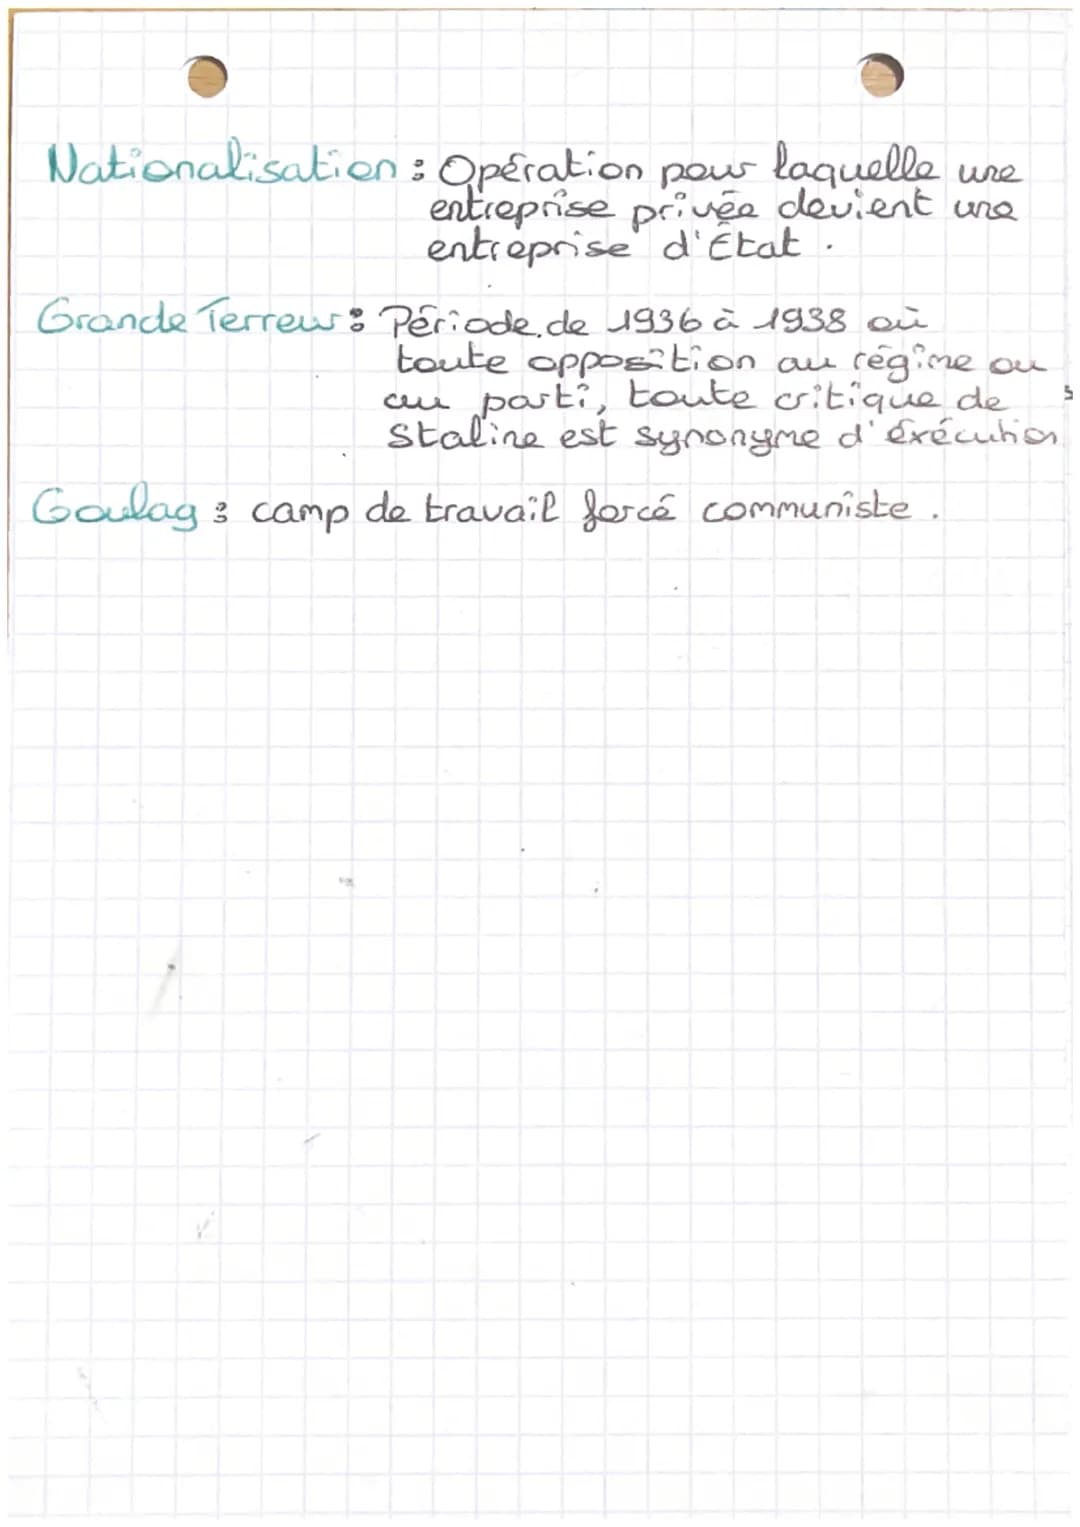 Nationalisation : Opération pour laquelle une
entreprise privée devient une
entreprise d'État .
Grande Terreur : Période de 1936 à 1938 où
toute opposition au régime ou
au parti, toute critique de
Staline est synonyme d'éxécution
Goulag : camp de travail forcé communiste .